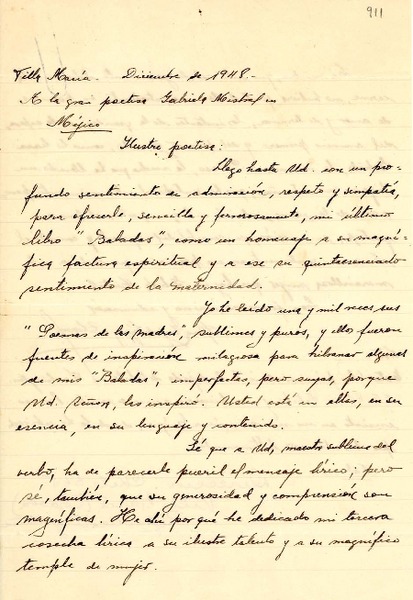 911
Villa María. Diciembre de 1948.-
A la gran poetisa Gabriela Mistral en
Méjico
Ilustre poetisa:
Llego hasta Ud. con un pro-
fundo sentimiento de admiración, respeto y simpatía,
para ofrecerle, sencilla y fervorosamente, mi último
libro "Baladas", como un homenaje a su magní-
fica factura espiritual y a ese su quintaesenciado
sentimiento de la maternidad.
Yo he leído una y mil veces sus
"Poemas de las madres", sublimes y puros, y ello fueron
fuentes de inspiración milagrosa para hilvanar algunas
de mis "Baladas", imperfectas, pero suyas, porque
Ud. Señora, las inspiró. Usted está en ellas, en su
esencia, en su lenguaje y contenido.
Sé que a Ud, maestra sublime del
verbo, ha de parecerle pueril el mensaje lírico; pero
sé, también, que su generosidad y comprensión son
magníficas. He ahí por qué he dedicado mi tercera
cosecha lírica a su ilustre talento y a su magnífico
temple de mujer.